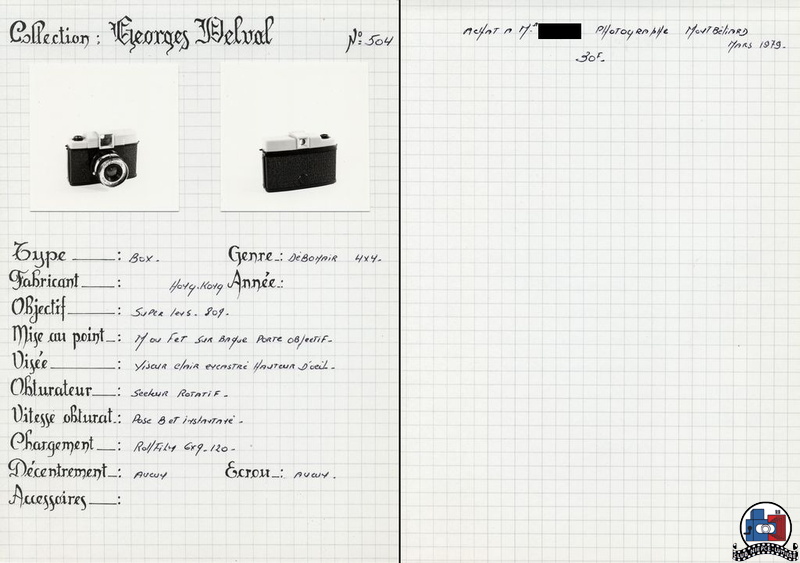 Collection : Georges Delval
N° 504
Type : Box.
Genre : Débonair 4x4.
Fabricant : Hong.Kong
Année :
Objectif : Super lens. 809.
Mise au point : M ou FeT sur bague porte objectif.
Visée : Viseur clair encastré Hauteur D'oeil.
Obturateur : Secteur Rotatif.
Vitesse obturat. : Pose B et instantané.
Chargement : RollFilm 6x9.120.
Décentrement : Aucun
Ecrou : Aucun.
Accessoires :
Achat a Mr Photographe Montbéliard
Mars 1979.
30F.